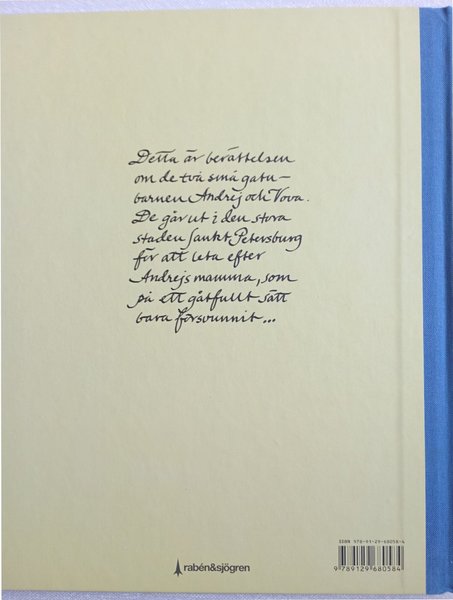 Detta är berättelsen
om de två små gatu-
barnen Andrej och Vova.
De går ut i den stora
staden Sankt Petersburg
för att leta efter
Andrejs mamma, som
på ett gåtfullt sätt
bara försvunnit...
ISBN 978-91-29-68058-4
9 789129 680584
rabén&sjögren